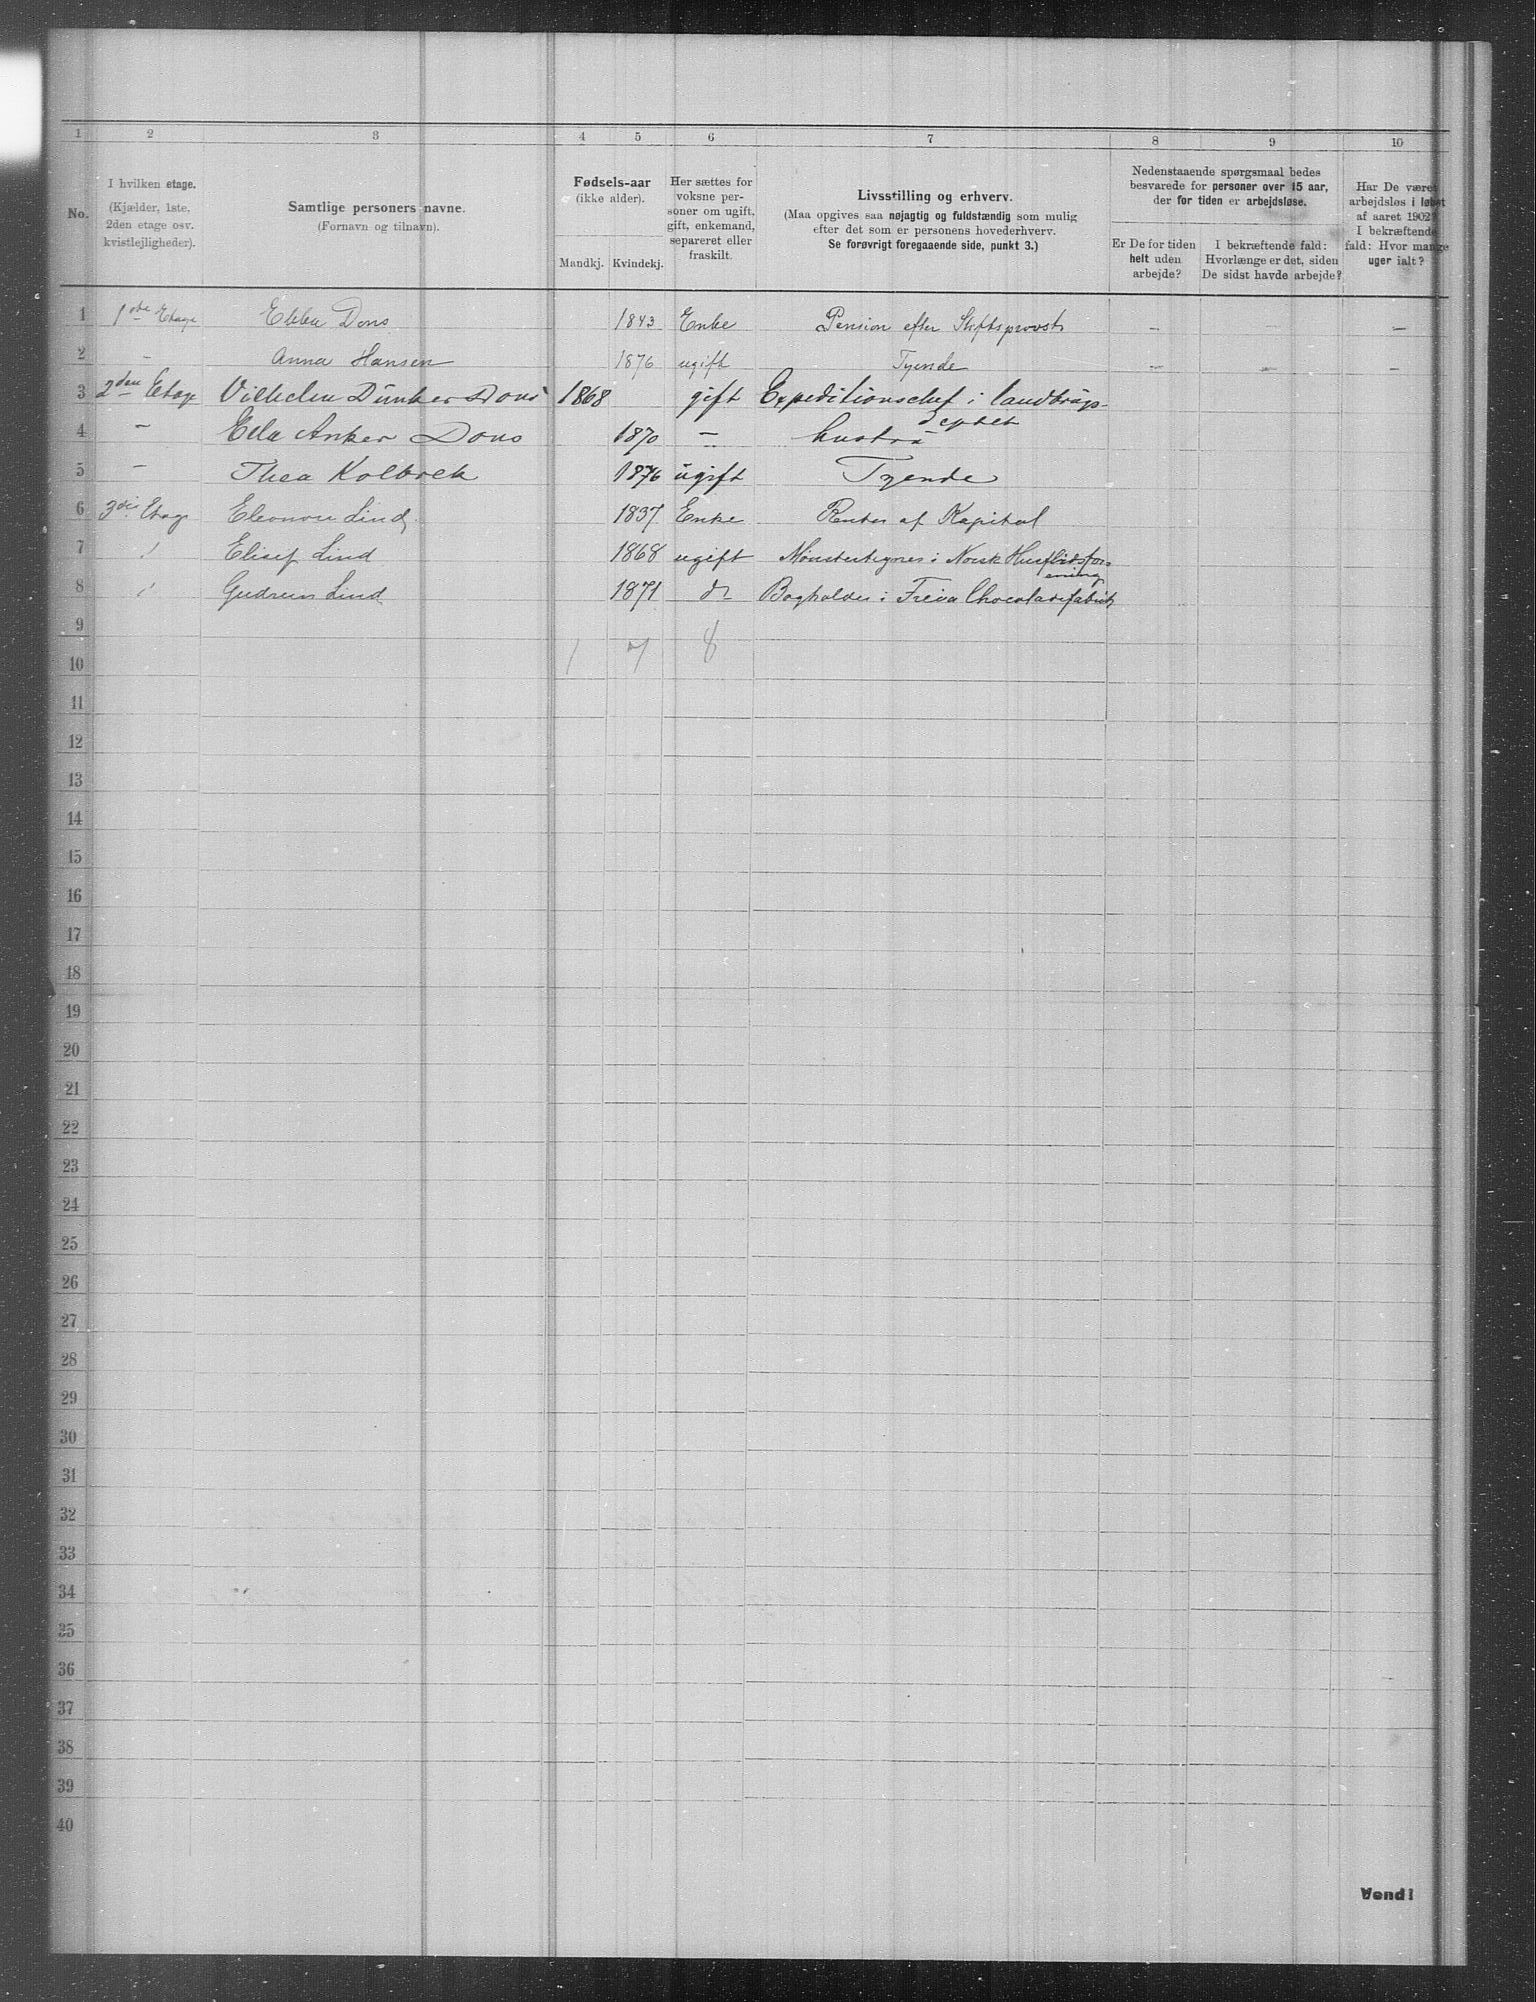 1 2 3 4 5 6 7 8 9 10
No.
I hvilken etage.
(Kjælder, 1ste,
2den etage osv.
kvistlejligheder).
Samtlige personers navne.
(Fornavn og tilnavn).
Fødsels-aar
(ikke alder).
Mandkj. Kvindekj.
Her sættes for
voksne per-
soner om ugift,
gift, enkemand,
separeret eller
fraskilt.
Livsstilling og erhverv.
(Maa opgives saa nøjagtig og fuldstændig som mulig
efter det som er personens hovederhverv.
Se forøvrigt foregaaende side, punkt 3.)
Nedenstaaende spørgsmaal bedes
besvarede for personer over 15 aar,
der for tiden er arbejdsløse.
Er De for tiden
helt uden
arbejde?
I bekræftende fald:
Hvorlænge er det, siden
De sidst havde arbejde?
Har De været
arbejdsløs i løbet
af aaret 1902?
I bekræftende
fald: Hvor mange
uger ialt?
1 1ste Etage Ebba Dons 1843 Enke Pension efter Stiftsprovst – – –
2 – Anna Hansen 1876 ugift Tyende – – –
3 2den Etage Vilhelm Dunker Dons 1868 gift Expeditionschef i Landbrugs-
deptet
4 – Ella Anker Dons 1870 – hustru
5 – Thea Kolbrek 1876 ugift Tyende
6 3die Etage Eleonore Lind 1837 Enke Renter af Kapital
7 " Elisef Lind 1868 ugift Mønstertegner i Norsk Husflidsfor-
ening
8 " Gudrun Lind 1871 do Bogholder i Freia Chocoladefabrik
9
10 1 7 8
11
12
13
14
15
16
17
18
19
20
21
22
23
24
25
26
27
28
29
30
31
32
33
34
35
36
37
38
39
40
Vend!